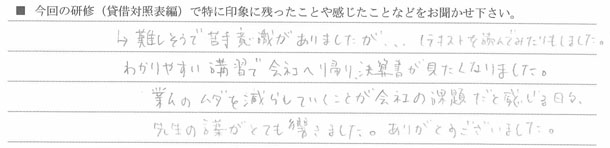 ■ 今回の研修（貸借対照表編）で特に印象に残ったことや感じたことなどをお聞かせ下さい。
↳難しそうで苦手意識がありましたが... (テキストを読んでみたりもしました。
わかりやすい講習で会社へ帰り、決算書が見たくなりました。
業ムのムダを減らしていくことが会社の課題だと感じる日々、
先生の言葉がとても響きました。ありがとうございました。